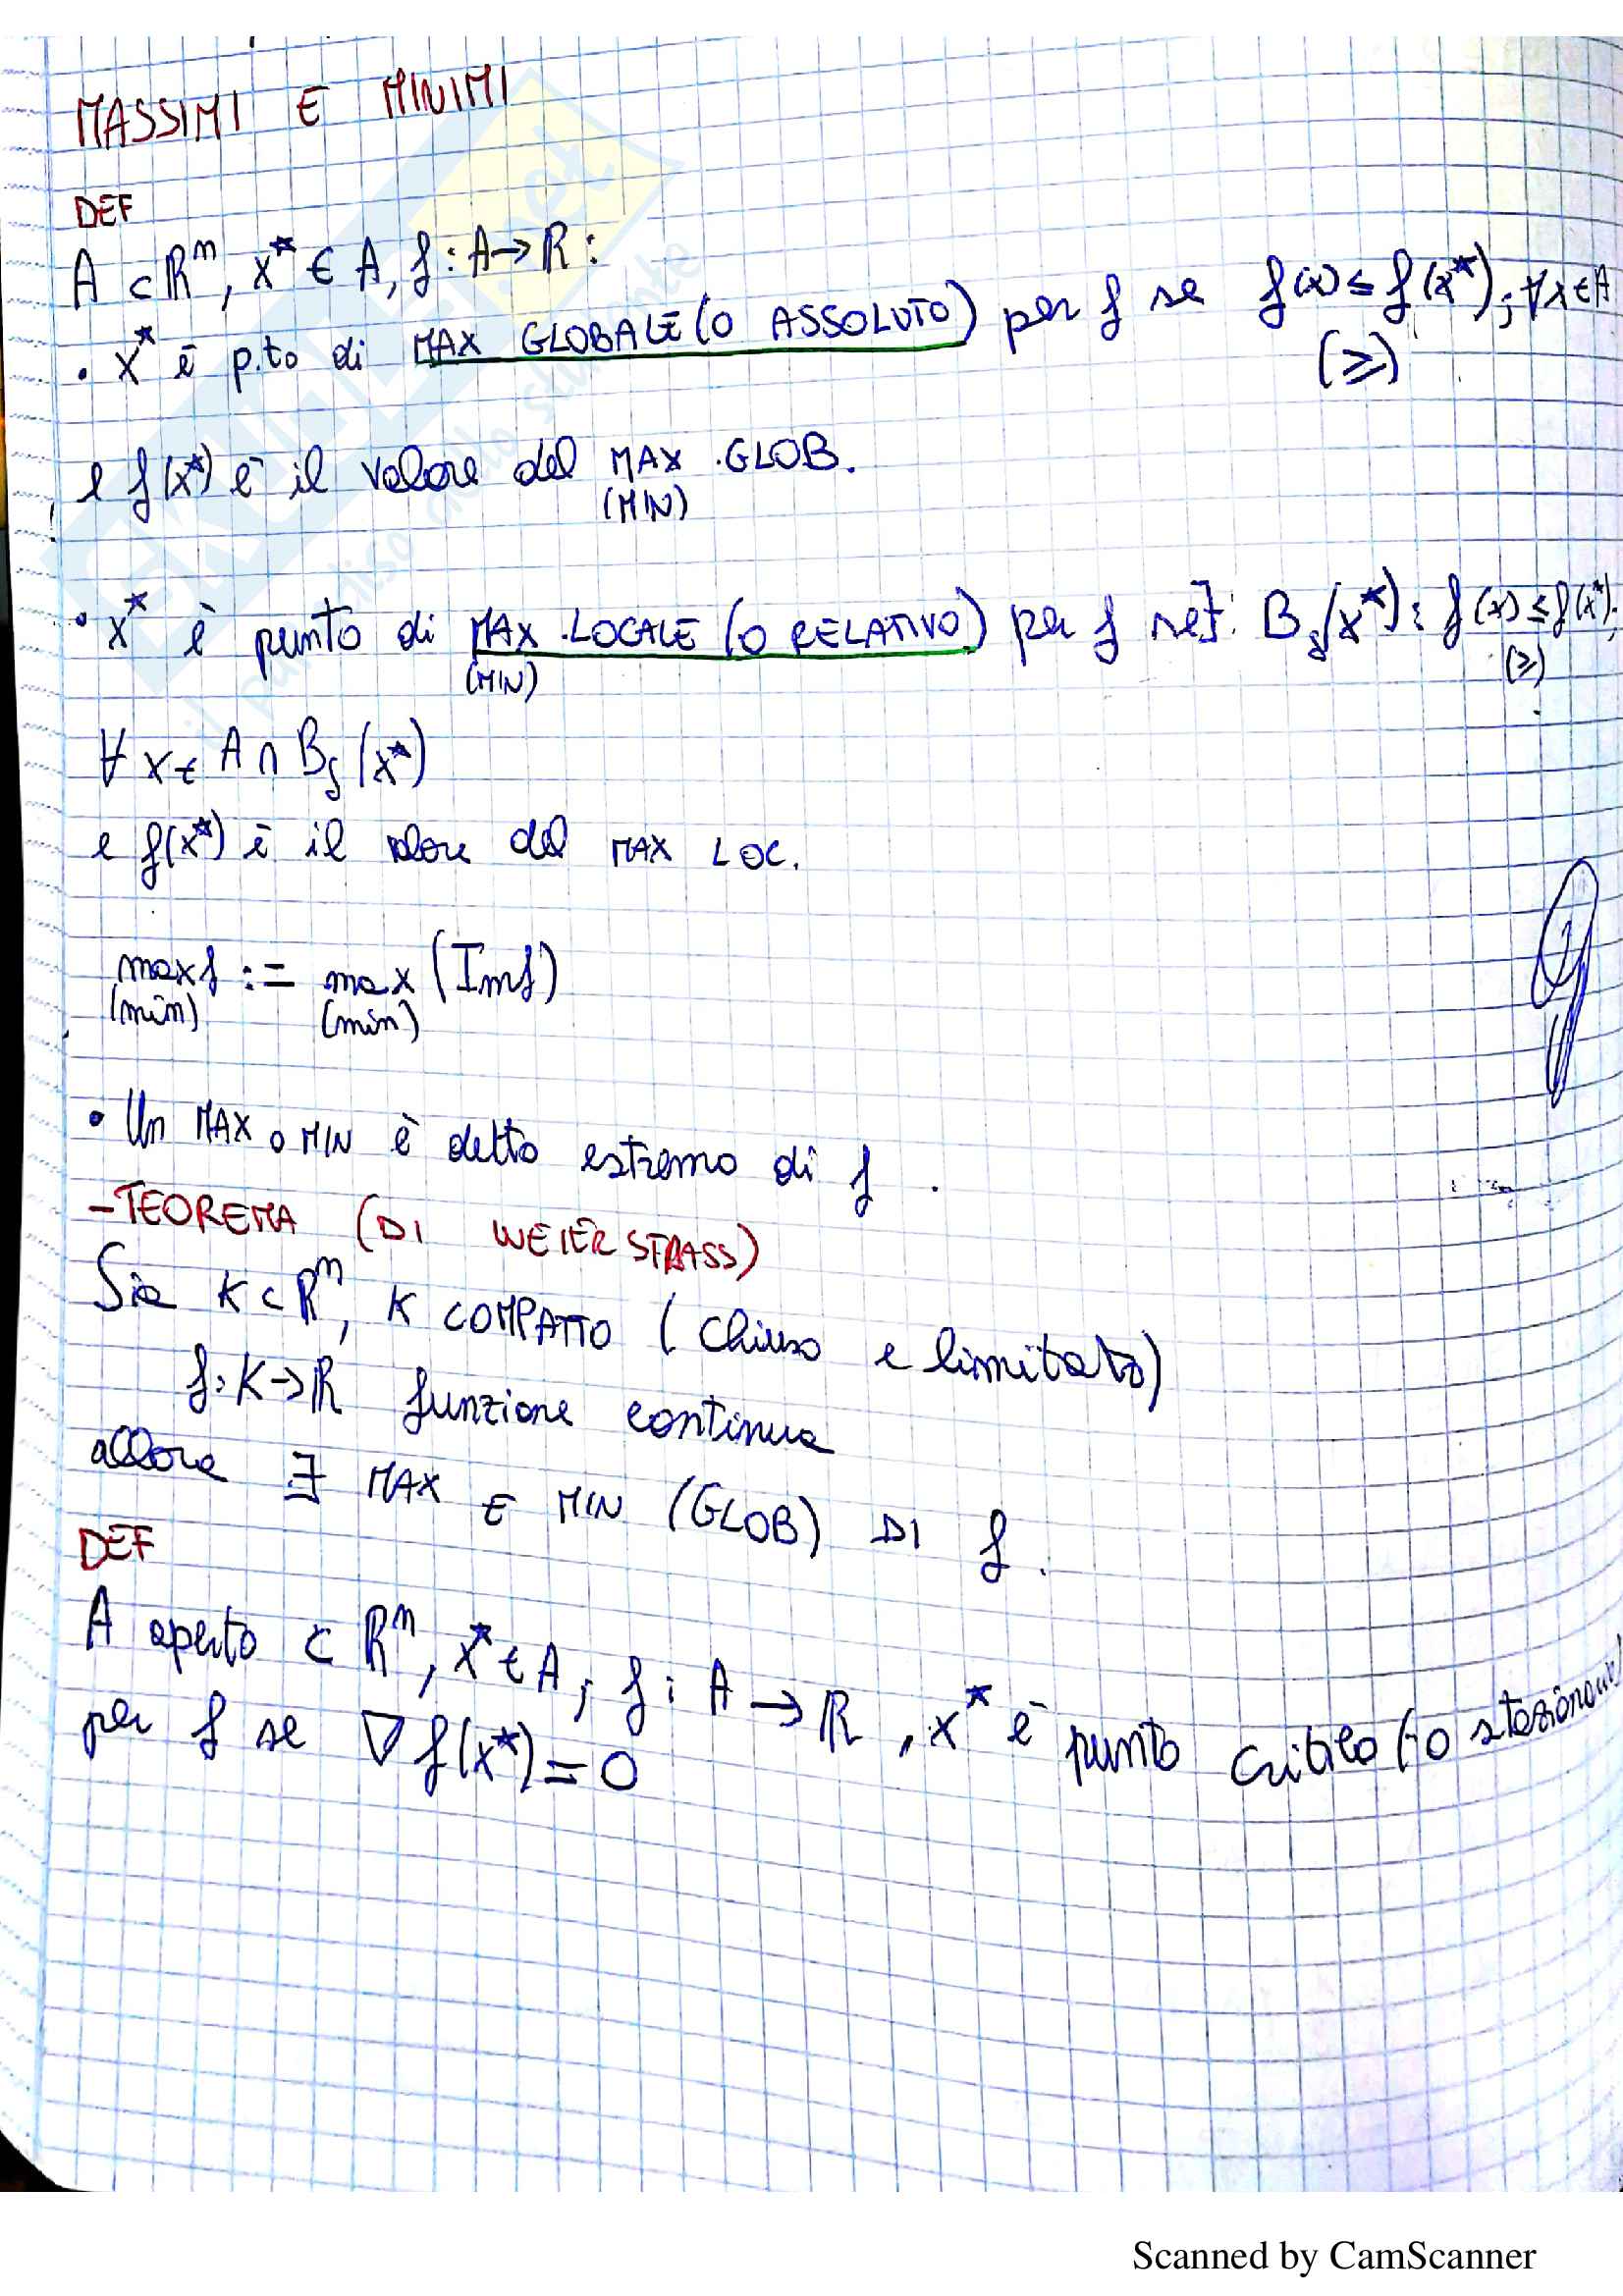 MASSIMI E MINIMI
DEF
A ⊂ ℝⁿ, x* ∈ A, f : A → ℝ :
• x* è p.to di MAX GLOBALE (O ASSOLUTO) per f se f(x) ≤ f(x*), ∀x ∈ A
(≥)
e f(x*) è il valore del MAX GLOB.
(MIN)
• x* è punto di MAX LOCALE (O RELATIVO) per f se ∃ : Bδ(x*) : f(x) ≤ f(x*);
(MIN) (≥)
∀ x ∈ A ∩ Bδ(x*)
e f(x*) è il valore del MAX LOC.
max f := max (Imf)
(min) (min)
• Un MAX o MIN è detto estremo di f .
- TEOREMA (DI WEIERSTRASS)
Sia K ⊂ ℝⁿ, K COMPATTO (chiuso e limitato)
f : K → ℝ funzione continua
allora ∃ MAX E MIN (GLOB) DI f .
DEF
A aperto ⊂ ℝⁿ, x* ∈ A, f : A → ℝ, x* è punto critico (o stazionario)
per f se ∇f(x*) = 0
SKUOLA.net
il paradiso dello studente
Scanned by CamScanner